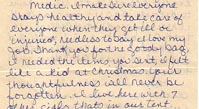 Medic. I make sure everyone
stays healthy and take care of
everyone when they get ill or
injured, needless to say I love my
job. Thank you for the Goody bag
I needed the items you sent, I felt
like a kid at Christmas. Your
thoughtfulness will never be
forgotten. We live here with 7
other that's in our tent.